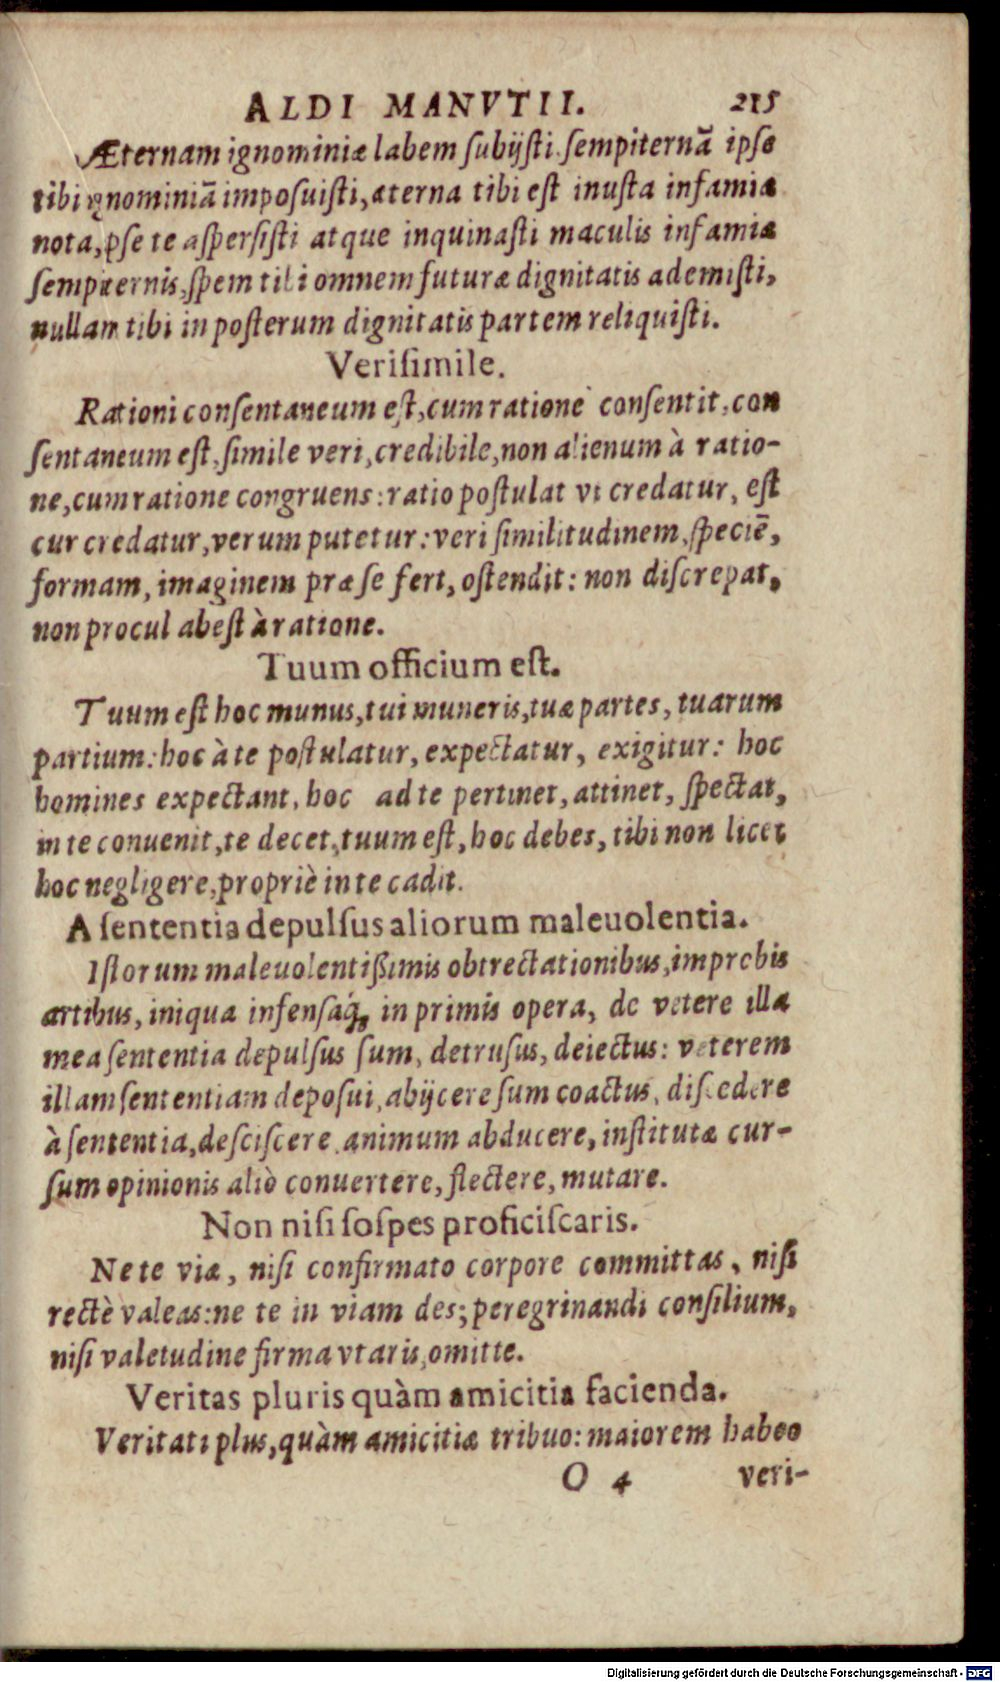 ALDI MANVTII. 215
Æternam ignominiæ labem ſubijſti. ſempiternā ipſe
tibi ignominiā impoſuiſti, æterna tibi eſt inuſta infamiæ
nota, ipſe te aſperſiſti atque inquinaſti maculis infamiæ
ſempiternis, ſpem tibi omnem futuræ dignitatis ademiſti,
nullam tibi in poſterum dignitatis partem reliquiſti.
Veriſimile.
Rationi conſentaneum eſt, cum ratione conſentit, con
ſentaneum eſt, ſimile veri, credibile, non alienum à ratio-
ne, cum ratione congruens: ratio poſtulat vt credatur, eſt
cur credatur, verum putetur: veri ſimilitudinem, ſpeciē,
formam, imaginem præ ſe fert, oſtendit: non diſcrepat,
non procul abeſt à ratione.
Tuum officium eſt.
Tuum eſt hoc munus, tui muneris, tuæ partes, tuarum
partium: hoc à te poſtulatur, expectatur, exigitur: hoc
homines expectant, hoc ad te pertinet, attinet, ſpectat,
in te conuenit, te decet, tuum eſt, hoc debes, tibi non licet
hoc negligere, propriè in te cadit.
A ſententia depulſus aliorum maleuolentia.
Iſtorum maleuolentißimis obtrectationibus, imprebis
artibus, iniqua infenſaq́; in primis opera, de vetere illa
mea ſententia depulſus ſum, detruſus, deiectus: veterem
illam ſententiam depoſui, abijcere ſum coactus, diſcedere
à ſententia, deſciſcere, animum abducere, inſtitutæ cur-
ſum opinionis aliò conuertere, flectere, mutare.
Non niſi ſoſpes proficiſcaris.
Ne te viæ, niſi confirmato corpore committas, niſi
rectè valeas: ne te in viam des; peregrinandi conſilium,
niſi valetudine firma vtaris, omitte.
Veritas pluris quàm amicitia facienda.
Veritati plus, quàm amicitiæ tribuo: maiorem habeo
O 4 veri-
Digitalisierung gefördert durch die Deutsche Forschungsgemeinschaft - DFG